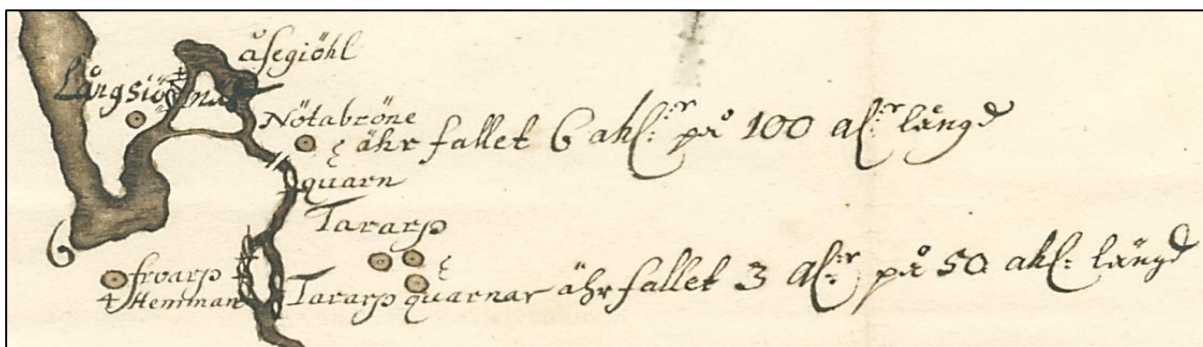 åsegiöhl
Långsiö
Nötabröne
ähr fallet 6 ahl:r på 100 al:r långd
quarn
Tararp
6
froarp
4 Hemman
Tararp quarnar ähr fallet 3 al:r på 50 ahl: längd